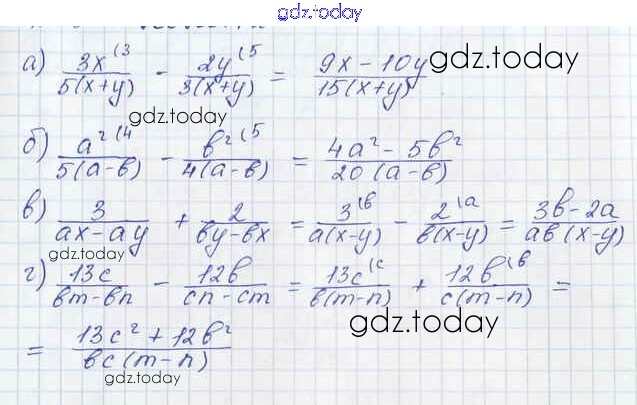 gdz.today
а) 3x(3 / 5(x+y) - 2y(5 / 3(x+y) = 9x - 10y / 15(x+y)
gdz.today
gdz.today
б) a²(4 / 5(a-в) - в²(5 / 4(a-в) = 4a² - 5в² / 20(a-в)
в) 3 / ax-ay + 2 / вy-вx = 3(в / a(x-y) - 2(a / в(x-y) = 3в-2a / aв(x-y)
gdz.today
г) 13c / вm-вn - 12в / cn-cm = 13c(c / в(m-n) + 12в(в / c(m-n) =
gdz.today
= 13c² + 12в² / вc(m-n)
gdz.today